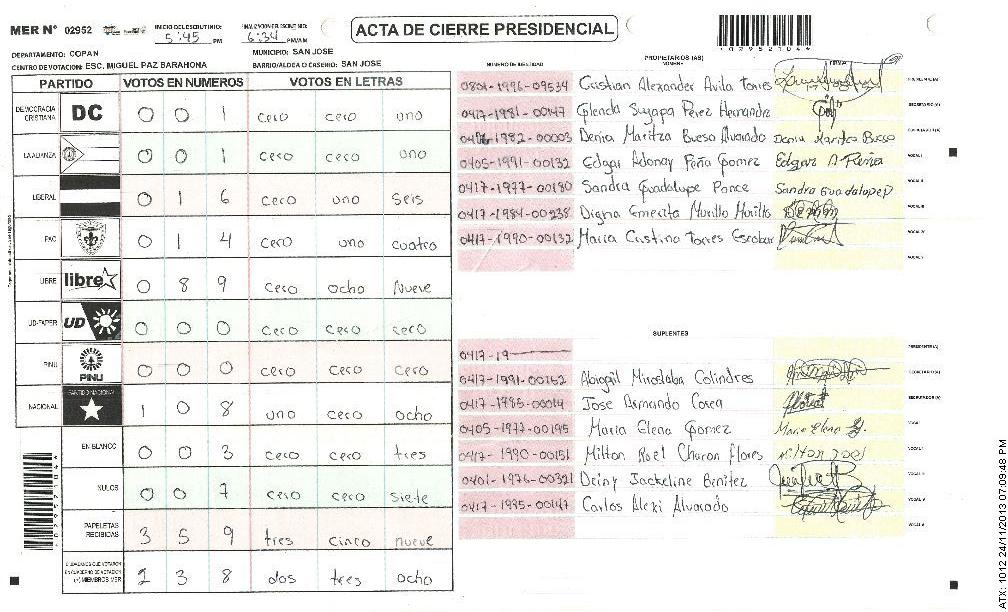 MER N° 02952
INICIO DEL ESCRUTINIO: 5:45 PM
6:34 PM/AM
ACTA DE CIERRE PRESIDENCIAL
DEPARTAMENTO: COPAN MUNICIPIO: SAN JOSE
CENTRO DE VOTACION: ESC. MIGUEL PAZ BARAHONA BARRIO/ALDEA O CASERIO: SAN JOSE
PARTIDO VOTOS EN NUMEROS VOTOS EN LETRAS
DEMOCRACIA CRISTIANA DC 0 0 1 cero cero uno
LA ALIANZA 0 0 1 cero cero uno
LIBERAL 0 1 6 cero uno seis
PAC 0 1 4 cero uno cuatro
LIBRE libre 0 8 9 cero ocho nueve
UD-FAPER UD 0 0 0 cero cero cero
PINU PINU 0 0 0 cero cero cero
NACIONAL PARTIDO NACIONAL 1 0 8 uno cero ocho
EN BLANCO 0 0 3 cero cero tres
NULOS 0 0 7 cero cero siete
PAPELETAS RECIBIDAS 3 5 9 tres cinco nueve
CIUDADANOS QUE VOTARON EN CUADERNO DE VOTACION (+) MIEMBROS MER 2 3 8 dos tres ocho
NUMERO DE IDENTIDAD PROPIETARIOS (AS) NOMBRE FIRMA
0801-1996-09534 Cristian Alexander Avila Torres
0417-1981-00147 Glenda Suyapa Perez Hernandez
1982-00003 Denia Maritza Bueso Alvarado Denia Maritza Bueso
0405-1991-00132 Edgar Adonay Peña Gomez Edgar A Peña
0417-1977-00180 Sandra Guadalupe Ponce Sandra Guadalupe P
0417-1984-00238 Digna Emerita Murillo Murillo
0417-1990-00132 Maria Cristina Torres Escobar
SUPLENTES
0417-19
0417-1991-00162 Abigail Mirodaba Colindres
0417-1985-00014 Jose Armando Corea
0405-1977-00195 Maria Elena Gomez Maria Elena G.
0417-1990-00151 Milton Roel Charon Flores Milton Joel
0401-1976-00321 Deiny Jackeline Benitez
0417-1995-00147 Carlos Alexi Alvarado
ATX: 1012 24/11/2013 07:09:48 PM